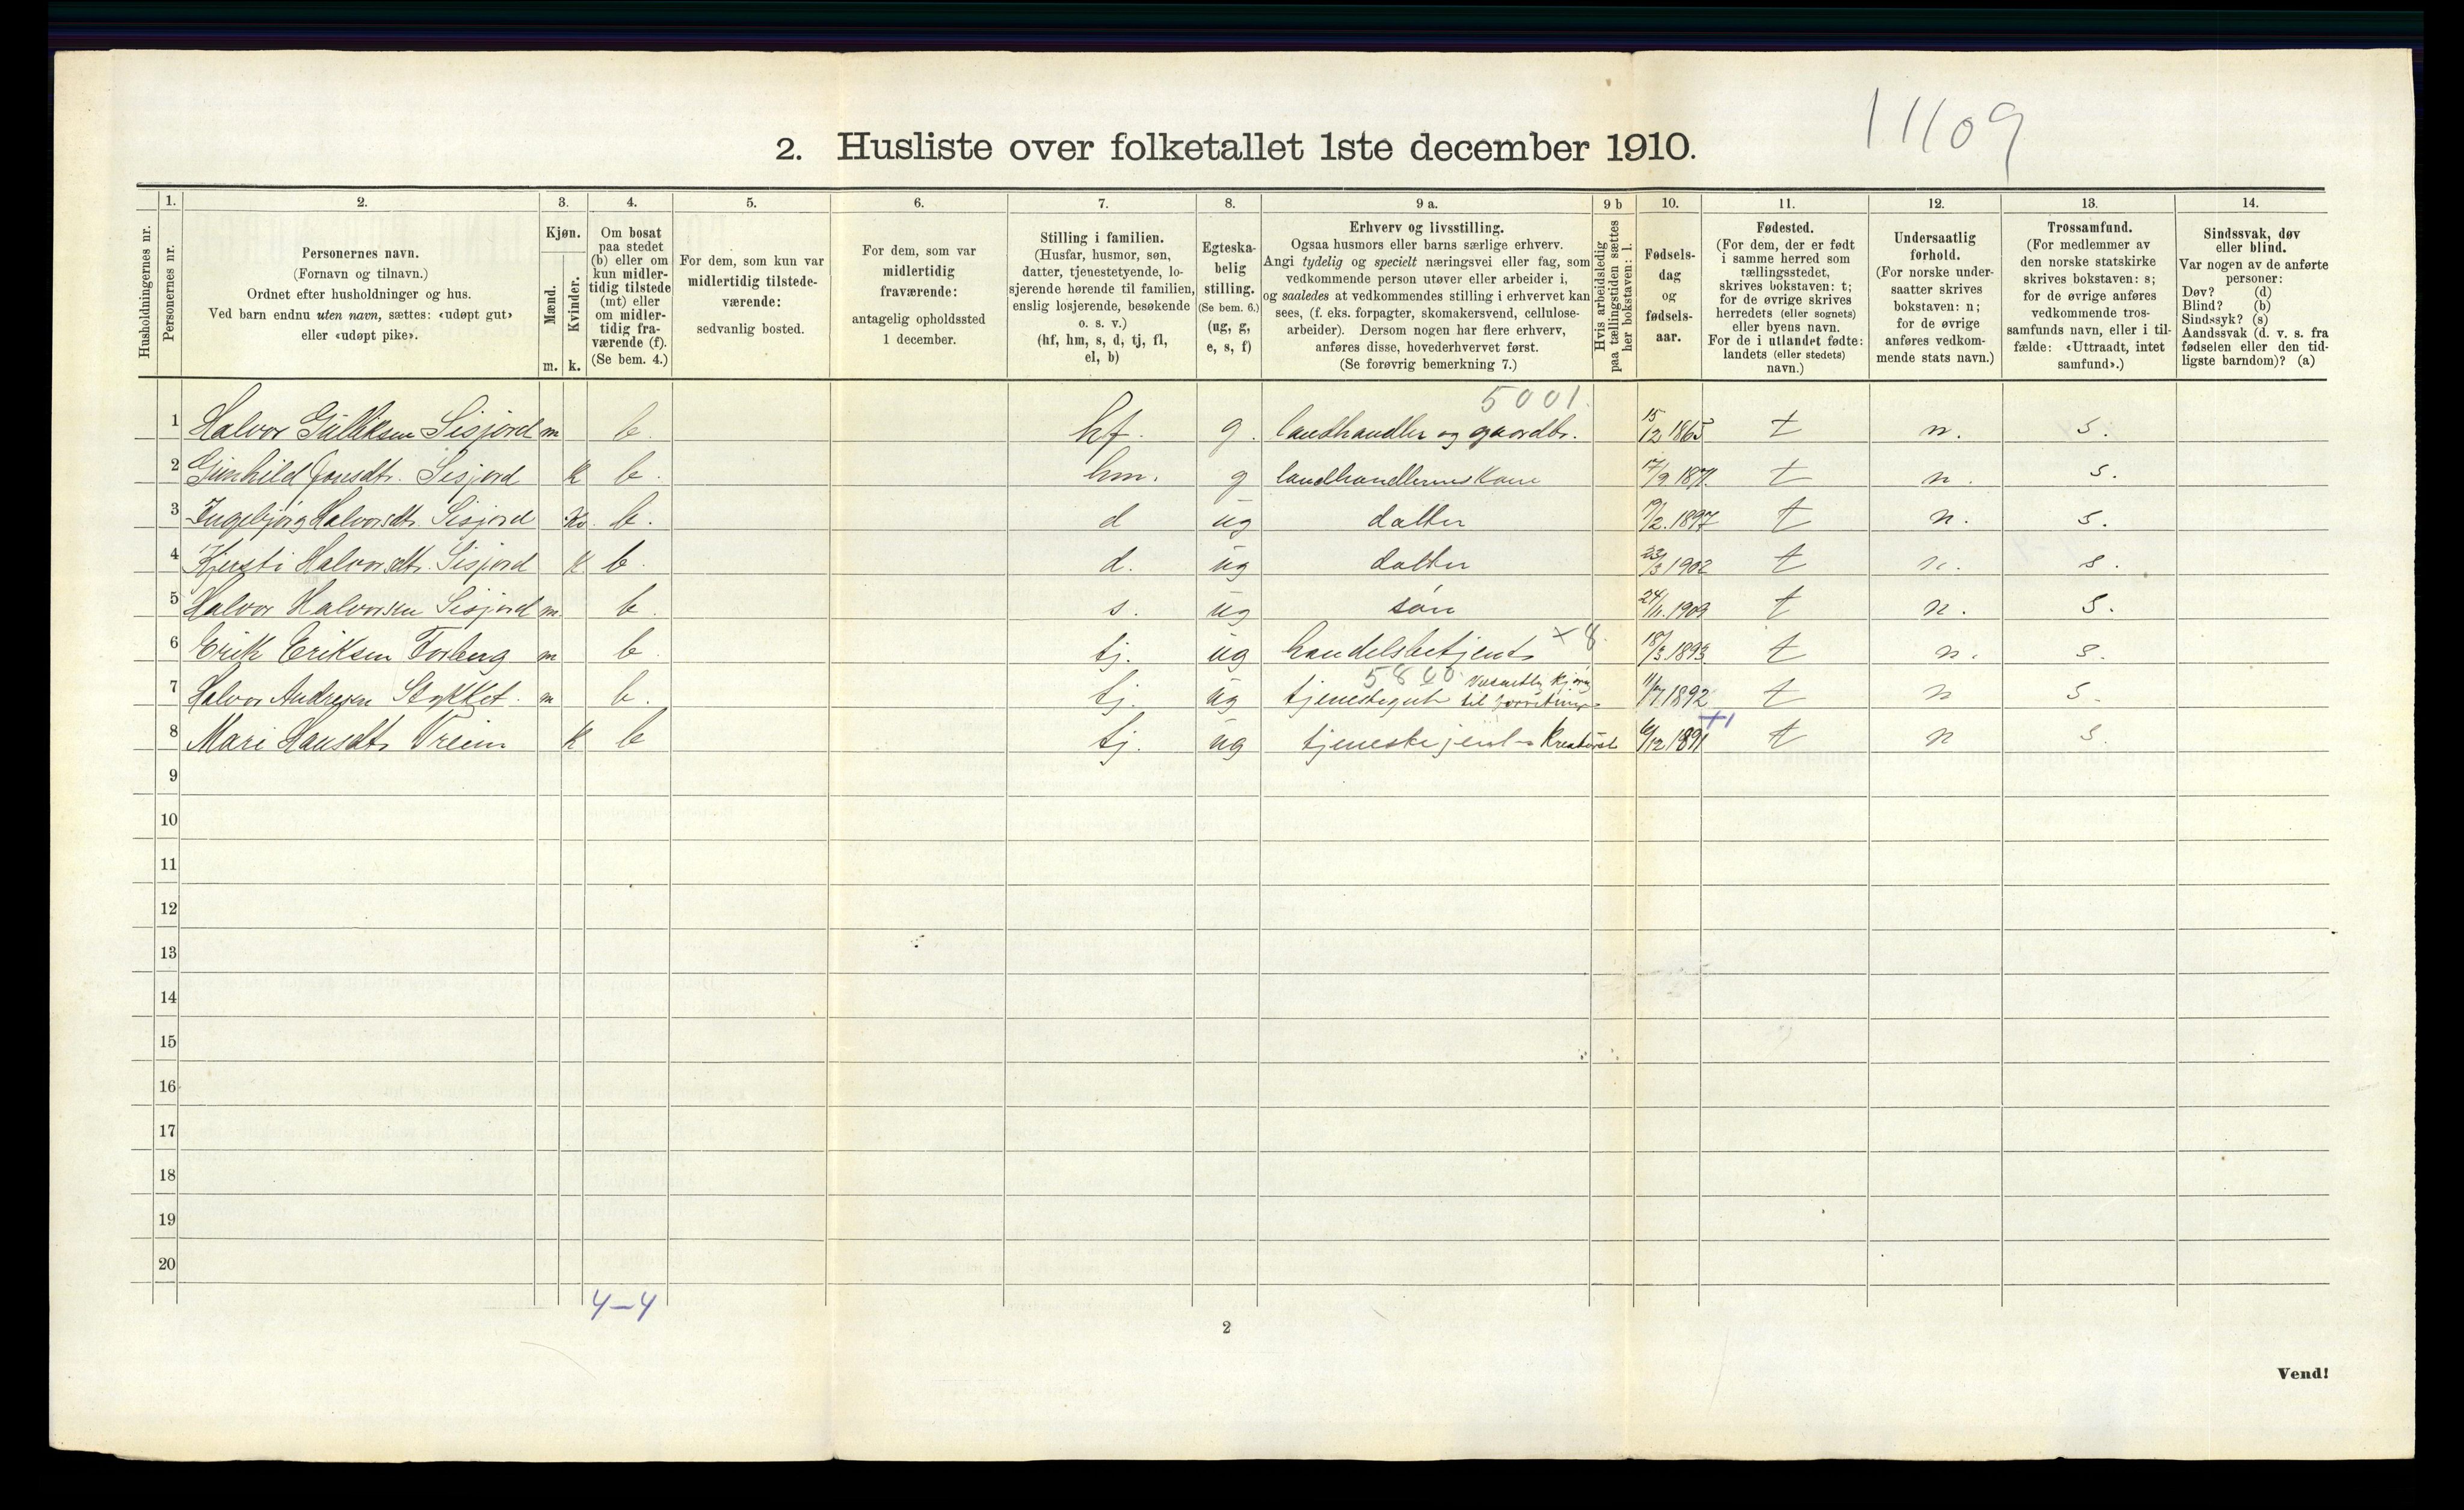 11109
2. Husliste over folketallet 1ste december 1910.
Husholdningernes nr.
1.
Personernes nr.
2.
Personernes navn.
(Fornavn og tilnavn.)
Ordnet efter husholdninger og hus.
Ved barn endnu uten navn, sættes: «udøpt gut»
eller «udøpt pike».
3.
Kjøn.
Mænd.
Kvinder.
m. k.
4.
Om bosat
paa stedet
(b) eller om
kun midler-
tidig tilstede
(mt) eller
om midler-
tidig fra-
værende (f).
(Se bem. 4.)
5.
For dem, som kun var
midlertidig tilstede-
værende:
sedvanlig bosted.
6.
For dem, som var
midlertidig
fraværende:
antagelig opholdssted
1 december.
7.
Stilling i familien.
(Husfar, husmor, søn,
datter, tjenestetyende, lo-
sjerende hørende til familien,
enslig losjerende, besøkende
o. s. v.)
(hf, hm, s, d, tj, fl,
el, b)
8.
Egteska-
belig
stilling.
(Se bem. 6.)
(ug, g,
e, s, f)
9 a.
Erhverv og livsstilling.
Ogsaa husmors eller barns særlige erhverv.
Angi tydelig og specielt næringsvei eller fag, som
vedkommende person utøver eller arbeider i,
og saaledes at vedkommendes stilling i erhvervet kan
sees, (f. eks. forpagter, skomakersvend, cellulose-
arbeider). Dersom nogen har flere erhverv,
anføres disse, hovederhvervet først.
(Se forøvrig bemerkning 7.)
9 b
Hvis arbeidsledig
paa tællingstiden sættes
her bokstaven: l.
10.
Fødsels-
dag
og
fødsels-
aar.
11.
Fødested.
(For dem, der er født
i samme herred som
tællingsstedet,
skrives bokstaven: t;
for de øvrige skrives
herredets (eller sognets)
eller byens navn.
For de i utlandet fødte:
landets (eller stedets)
navn.)
12.
Undersaatlig
forhold.
(For norske under-
saatter skrives
bokstaven: n;
for de øvrige
anføres vedkom-
mende stats navn.)
13.
Trossamfund.
(For medlemmer av
den norske statskirke
skrives bokstaven: s;
for de øvrige anføres
vedkommende tros-
samfunds navn, eller i til-
fælde: «Uttraadt, intet
samfund».)
14.
Sindssvak, døv
eller blind.
Var nogen av de anførte
personer:
Døv? (d)
Blind? (b)
Sindssyk? (s)
Aandssvak (d. v. s. fra
fødselen eller den tid-
ligste barndom)? (a)
5001.
1 Halvor Gulliksen Sisjord m b. hf. g. landhandler og gaardbr. 15/12 1865 t n. s.
2 Gunhild Jonsdtr. Sisjord k b. hm. g landhandlerens kone 17/9 1871. t n. s.
3 Ingebjørg Halvorsdtr. Sisjord kv. b. d ug datter /2. 1897 t n. s.
4 Kjersti Halvorsdtr. Sisjord k b. d. ug datter 23/3 1902 t n. s.
5 Halvor Halvorsen Sisjord m b. s. ug søn 24/11. 1909 t n. s.
6 Erik Eriksen Forberg m b. tj. ug handelsbetjent x 8. 18/3. 1893 t n. s.
7 Halvor Andresen Stykket. m b. tj. ug tjenestegut 11/7 1892 t n s.
8 Mari Hansdtr Vreim k b tj. ug tjenestejente 6/12 1891 +1 t n s.
9
10
11
12
13
14
15
16
17
18
19
20
4-4
2
Vend!